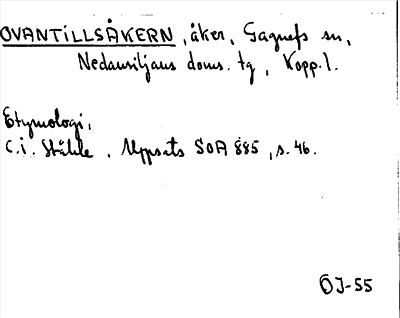 OVANTILLSÅKERN, åker, Gagnefs sn,
Nedansiljans doms. tg, Kopp. l.
Etymologi,
C.I. Ståhle, Uppsats SOA 885, s. 46.
ÖJ-55